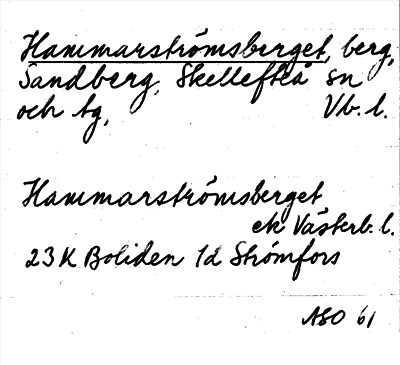 Hammarströmsberget, berg,
Sandberg, Skellefteå sn
och tg, Vb. l.
Hammarströmsberget
ek Västerb. l.
23K Boliden 1d Strömfors
ASO 61